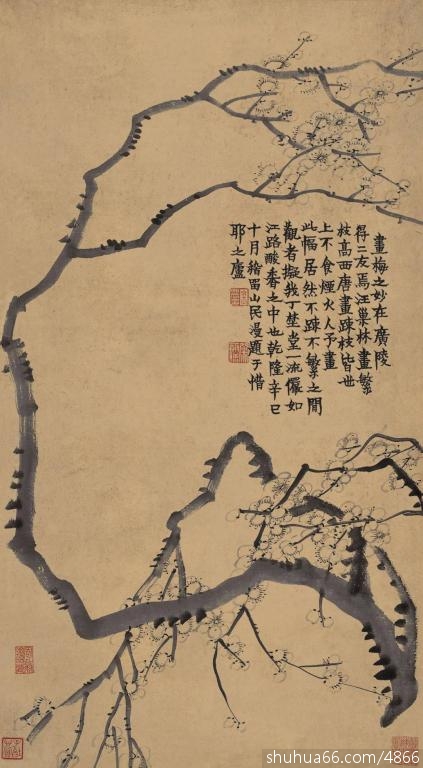 畫梅之妙在廣陵
得二友焉汪巢林畫繁
枝高西唐畫疎枝皆世
上不食煙火人予畫
此幅居然不疎不繁之間
觀者擬我丁埜堂一流儼如
江路酸香之中也乾隆辛巳
十月稽留山民漫題于惜
耶之廬
shuhua66.com/4866